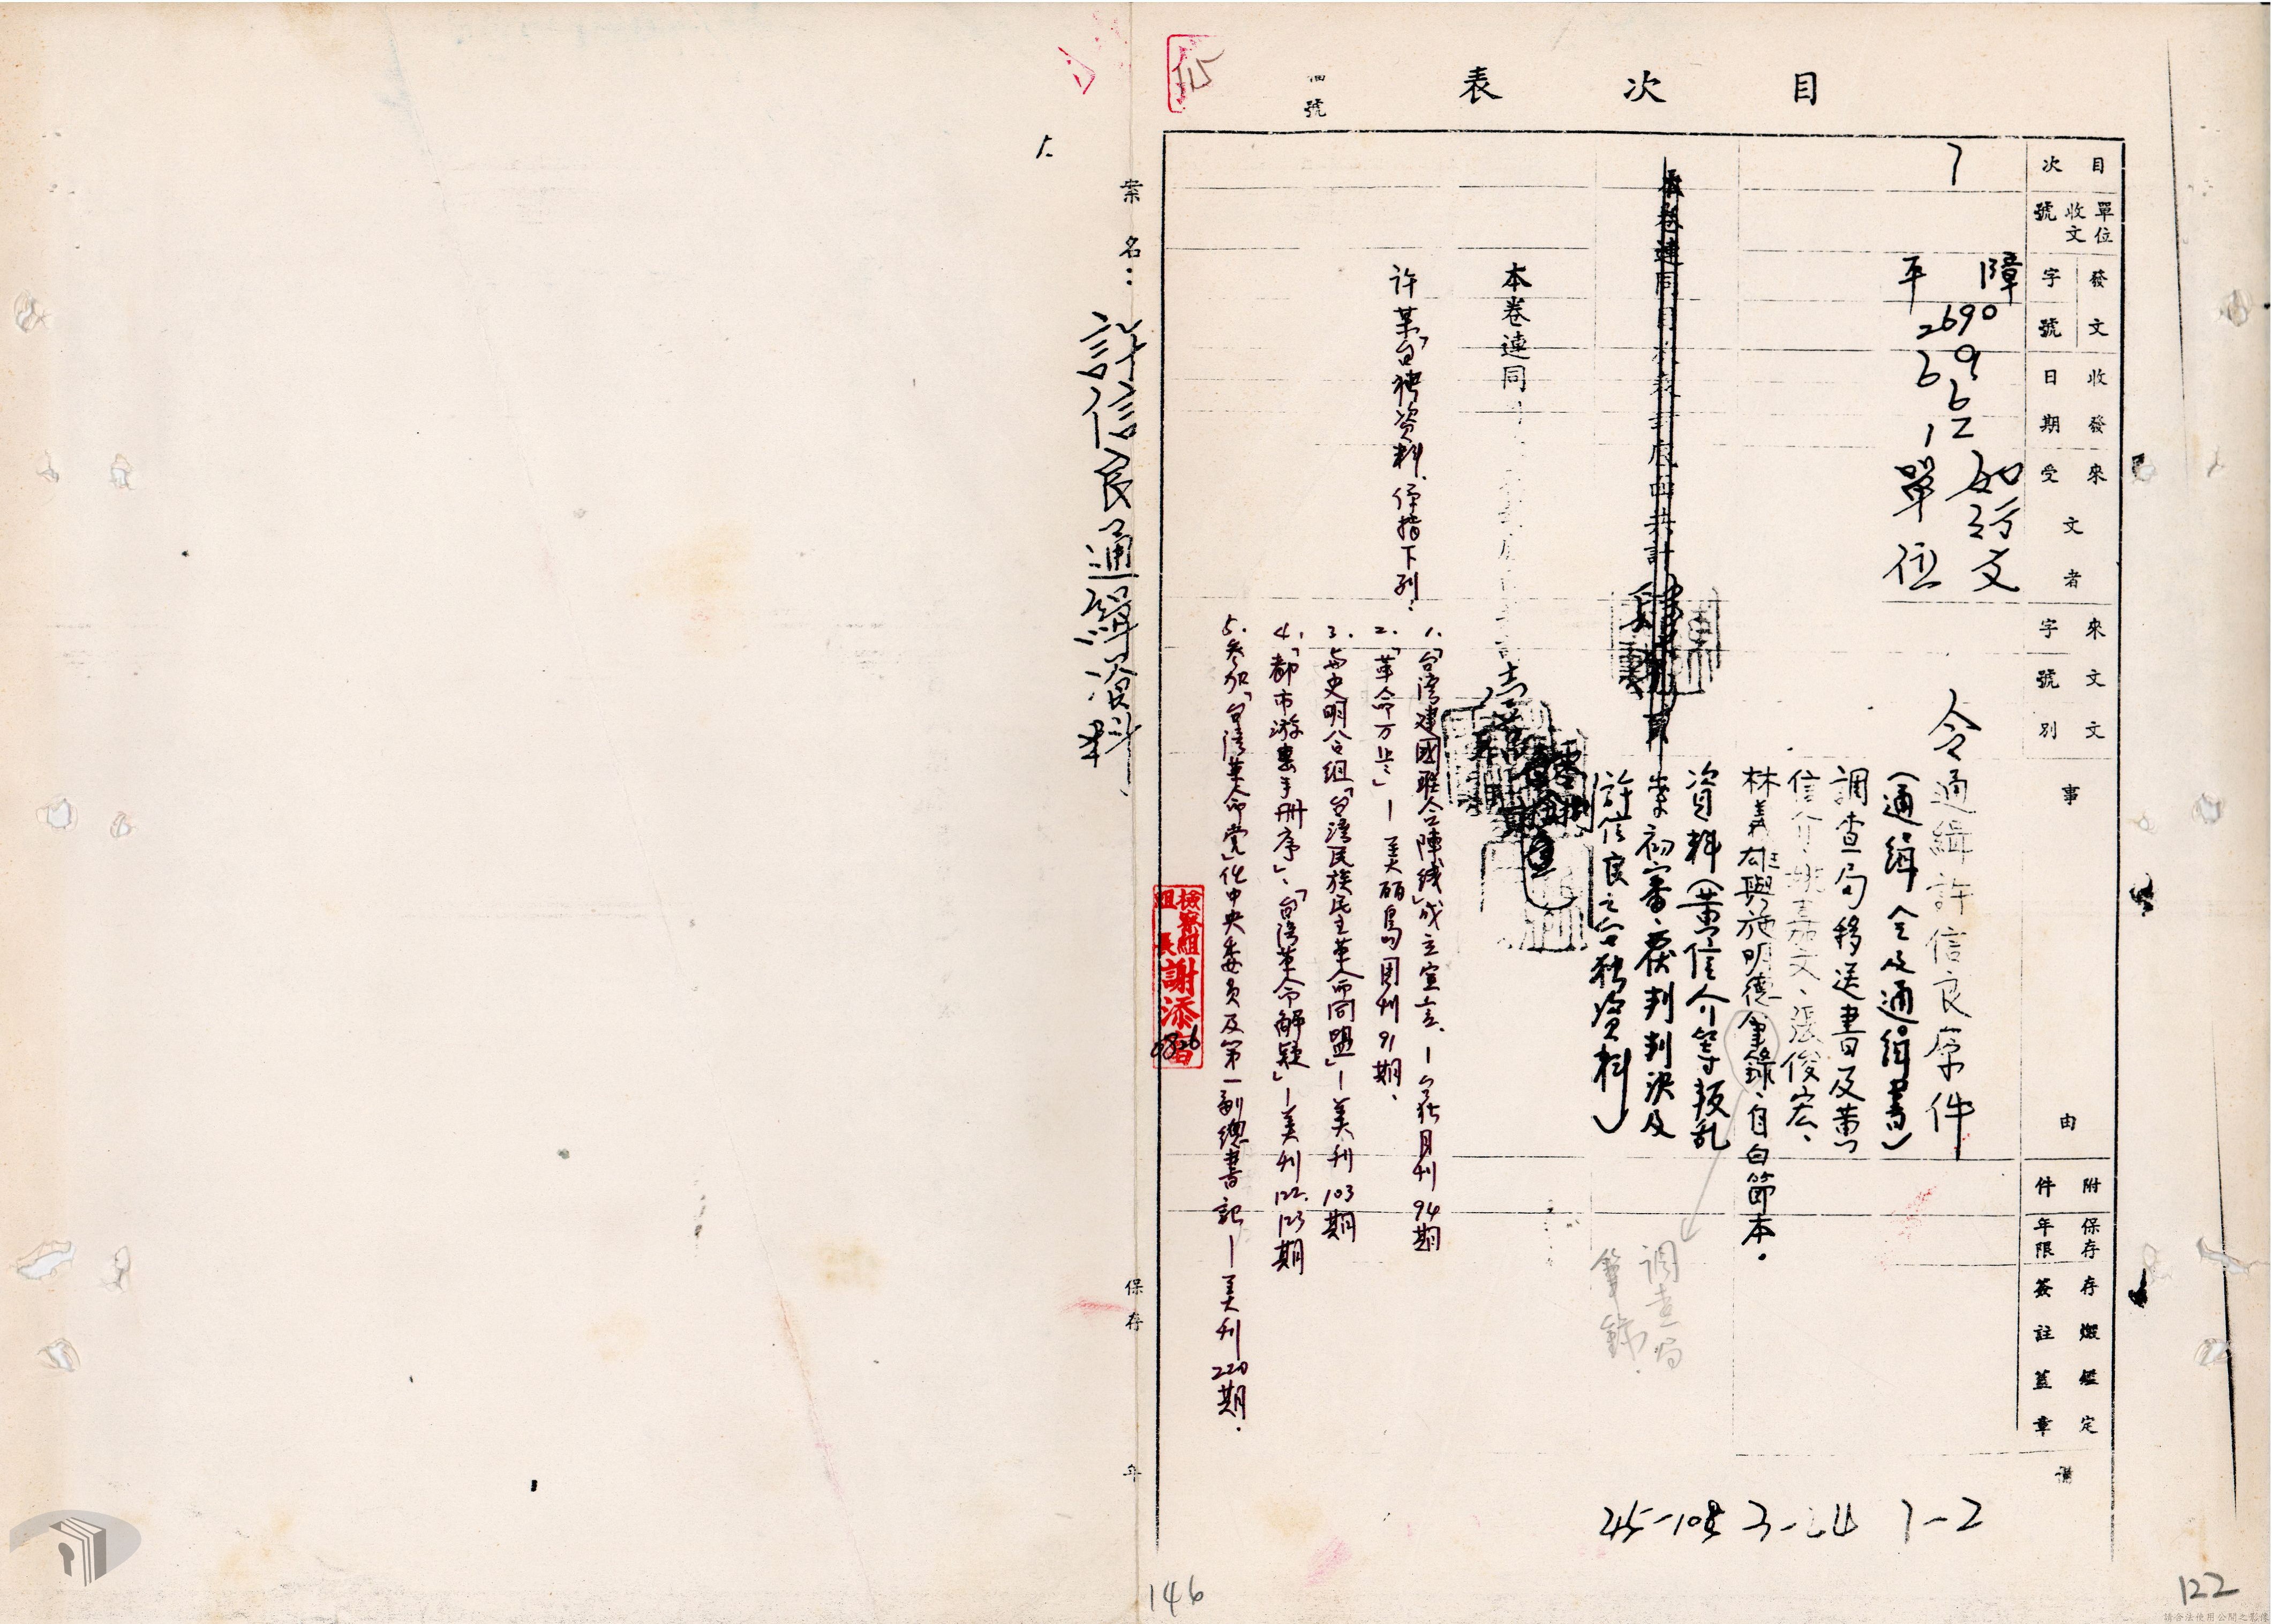 目次表
目次
單位收文號
發文字號
收發日期
來文受文者
來文字號
文別
事由
附件
保存年限
存燬鑑定簽註蓋章
1
障平
2690
69 6 12
如行文單位
令
通緝許信良原件
(通緝令及通緝書)
調查局移送書及黃
信介、姚嘉文、張俊宏、
林義雄與施明德筆錄、自白節本.
資料(黃信介等叛乱
案初審、覆判判決及
許信良之台独資料)
調查局
筆錄.
1-2
45-108
本卷連同
許某「台独資料」係指下列:
1.「台湾建國联合陣线」成立宣言.—台獨月刊94期
2.「革命万歲」—美丽島周刊91期.
3. 与史明合組「台湾民族民主革命同盟」—美刊103期
4.「都市游擊手册序」、「台湾革命解疑」—美刊122.123期
5. 参加「台湾革命党」任中央委員及第一副總書記—美刊220期.
檢察組組長謝添智
0826
號
案名:許信良通緝資料
保存 年
146
122
請合法使用公開之影像